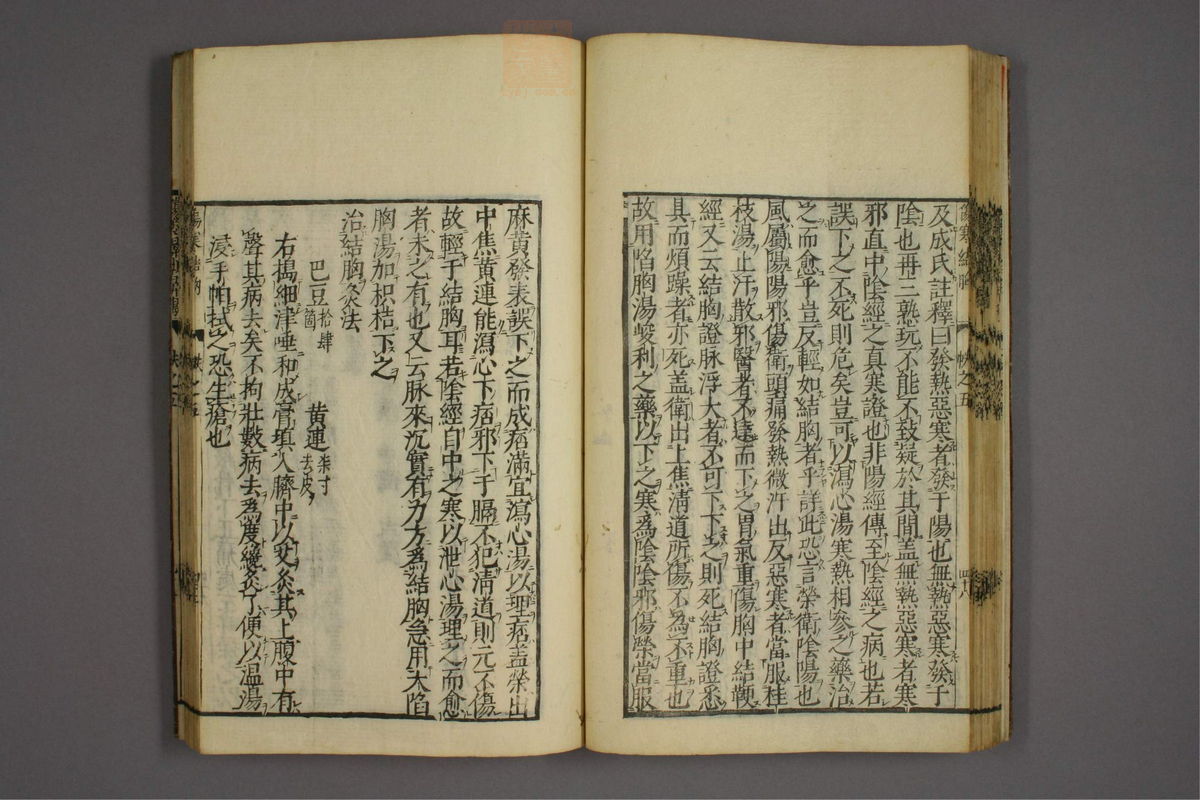 及成氏註釋曰發熱惡寒者發于陽也無熱惡寒發于
陰也再三熟玩不能不致疑於其間盖無熱惡寒者寒
邪直中陰經之真寒證也非陽經傳至陰經之病也若
誤下之不死則危矣豈可以瀉心湯寒熱相參之藥治
之而愈乎豈反輕如結胸者乎詳此恐言榮衛陰陽也
風屬陽陽邪傷衛頭痛發熱微汗出反惡寒者當服桂
枝湯止汗散邪醫者不達而下之胃氣重傷胸中結鞕
經又云結胸證脉浮大者不可下下之則死結胸證悉
具而煩躁者亦死盖衛出上焦淸道所傷不為不重也
故用陷胸湯峻利之藥以下之寒爲陰陰邪傷榮當服
麻黃發表誤下之而成痞滿宜瀉心湯以理痞盖榮出
中焦黃連能瀉心下痞邪下于膈不犯淸道則元不傷
故輕于結胸耳若陰經自中之寒以泄心湯理之而愈
者未之有也又云脉來沉實有力方爲結胸急用大陷
胸湯加枳桔下之
治結胸灸法
巴豆拾肆箇 黃連柒寸去皮
右搗細津唾和成膏填入臍中以艾灸其上腹中有
聲其病去矣不拘壯數病去爲度纔灸了便以温湯
浸手帕拭之恐生瘡也